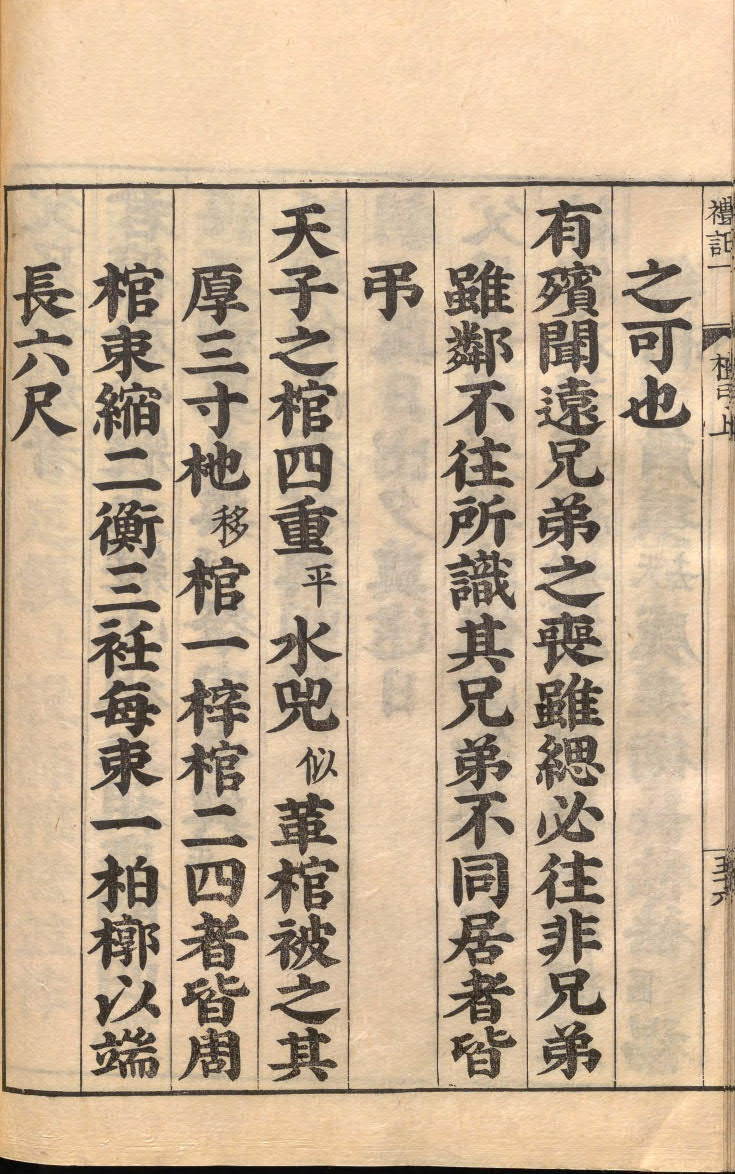 禮記一 檀弓上 五六
之可也
有殯聞遠兄弟之喪雖緦必往非兄弟
雖鄰不往所識其兄弟不同居者皆
弔
天子之棺四重平水兕似革棺被之其
厚三寸杝移棺一梓棺二四者皆周
棺束縮二衡三衽每束一柏槨以端
長六尺